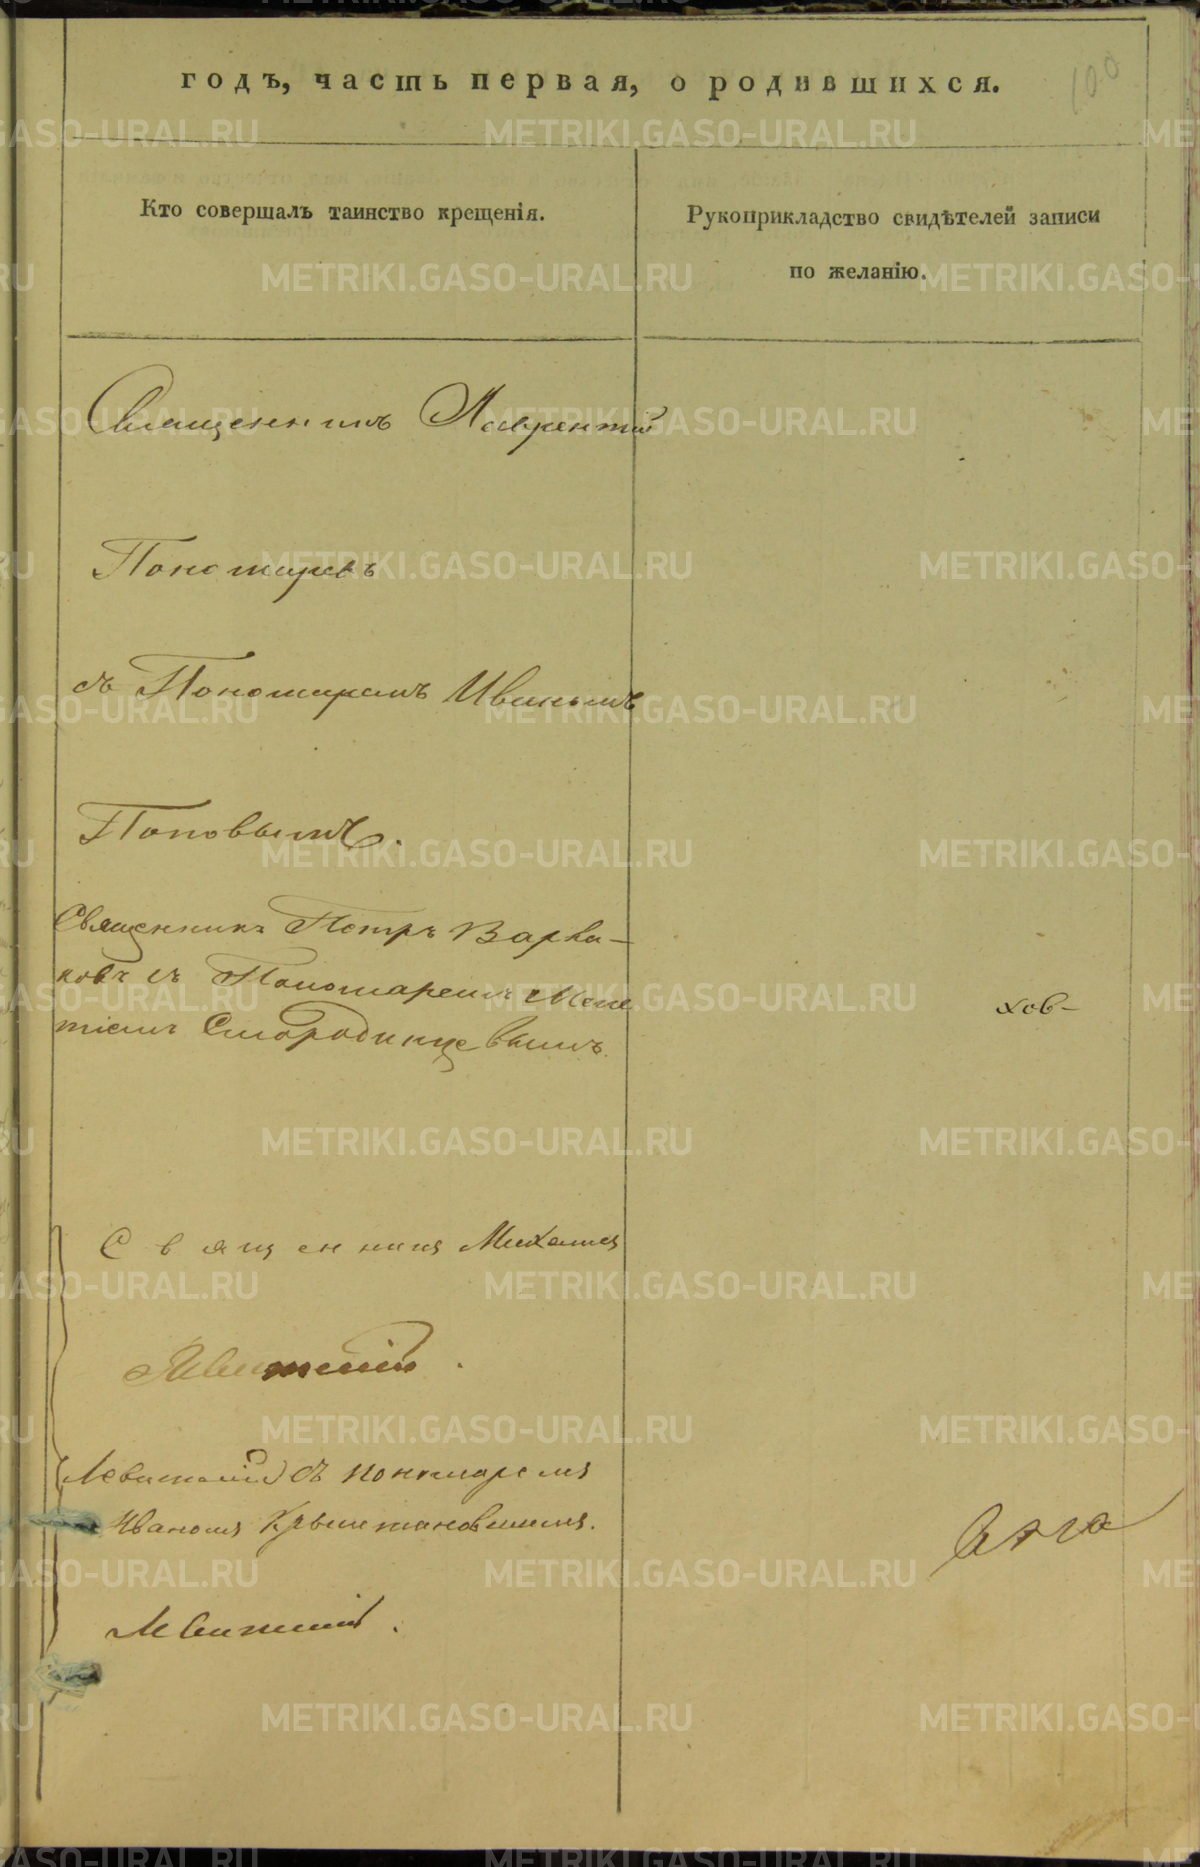 годъ, часть первая, о родившихся.
100
Кто совершалъ таинство крещенія.
Рукоприкладство свидѣтелей записи
по желанію.
Священникъ Лаврентій
Пономаревъ
съ Пономаремъ Иваномъ
Поповымъ.
Священникъ Петръ Варва-
ковъ съ Пономаремъ
Смородинцевымъ.
хов-
Священникъ Михаилъ
съ пономаремъ
Иваномъ
METRIKI.GASO-URAL.RU